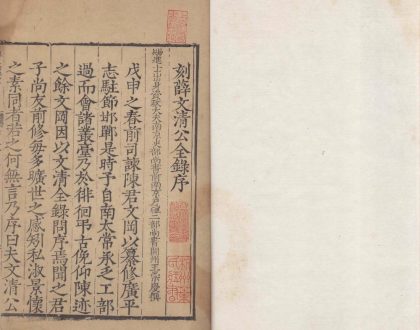 刻薛文清公全錄序
賜進士出身資政大夫南京吏部尚書前南京戶禮二部尚書開州王崇慶撰
戊申之春前司諫陳君文岡以纂修廣平
志駐節邯鄲是時予自南太常承乏工部
過而會諸叢臺乃於徘徊弔古俛仰陳迹
之餘文岡因以文清全錄問序焉聞之君
子尚友前修每多曠世之感矧私淑景懷
之素同者若之何無言乃序曰夫文清公